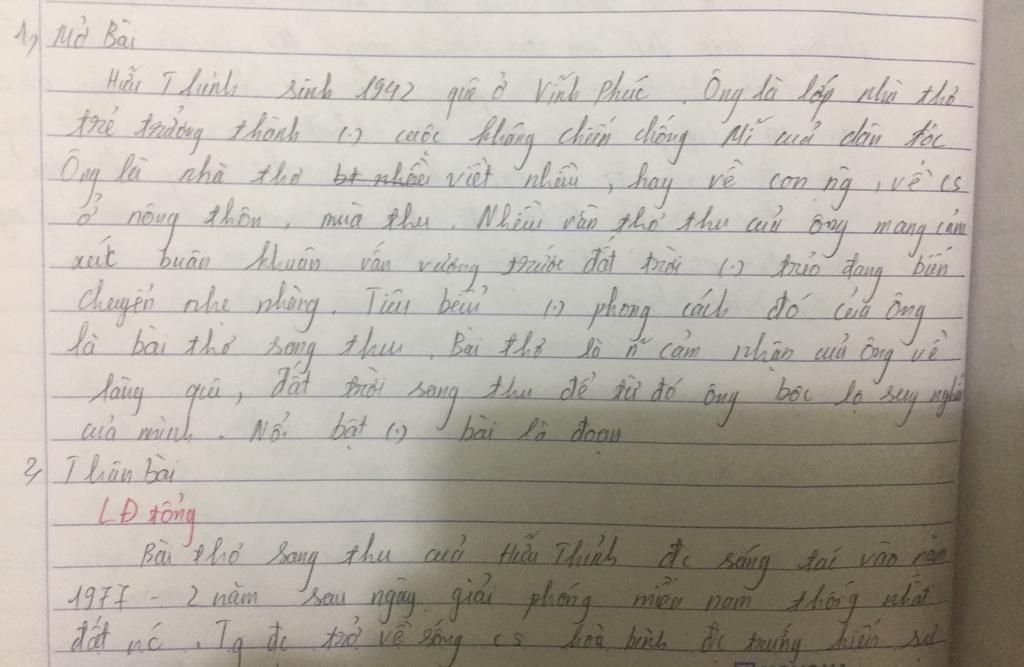 1, Mở Bài
Hữu Thỉnh sinh 1942 quê ở Vĩnh Phúc. Ông là lớp nhà thơ
trẻ trưởng thành (.) cuộc kháng chiến chống Mĩ của dân tộc
Ông là nhà thơ viết nhiều, hay về con ng, về cs
ở nông thôn, mùa thu. Nhiều vần thơ thu của ông mang cảm
xúc buân khuân vấn vương trước đất trời (.) trẻo đang biến
chuyển nhẹ nhàng. Tiêu biểu (.) phong cách đó của ông
là bài thơ sang thu. Bài thơ là n~ cảm nhận của ông về
làng quê, đất trời sang thu để từ đó ông bộc lộ suy nghĩ
của mình. Nổi bật (.) bài là đoạn
2, Thân bài
LĐ tổng
Bài thơ sang thu của Hữu Thỉnh đc sáng tác vào năm
1977 - 2 năm sau ngày giải phóng miền nam thống nhất
đất nc. Tg đc trở về sống cs hoà bình đc